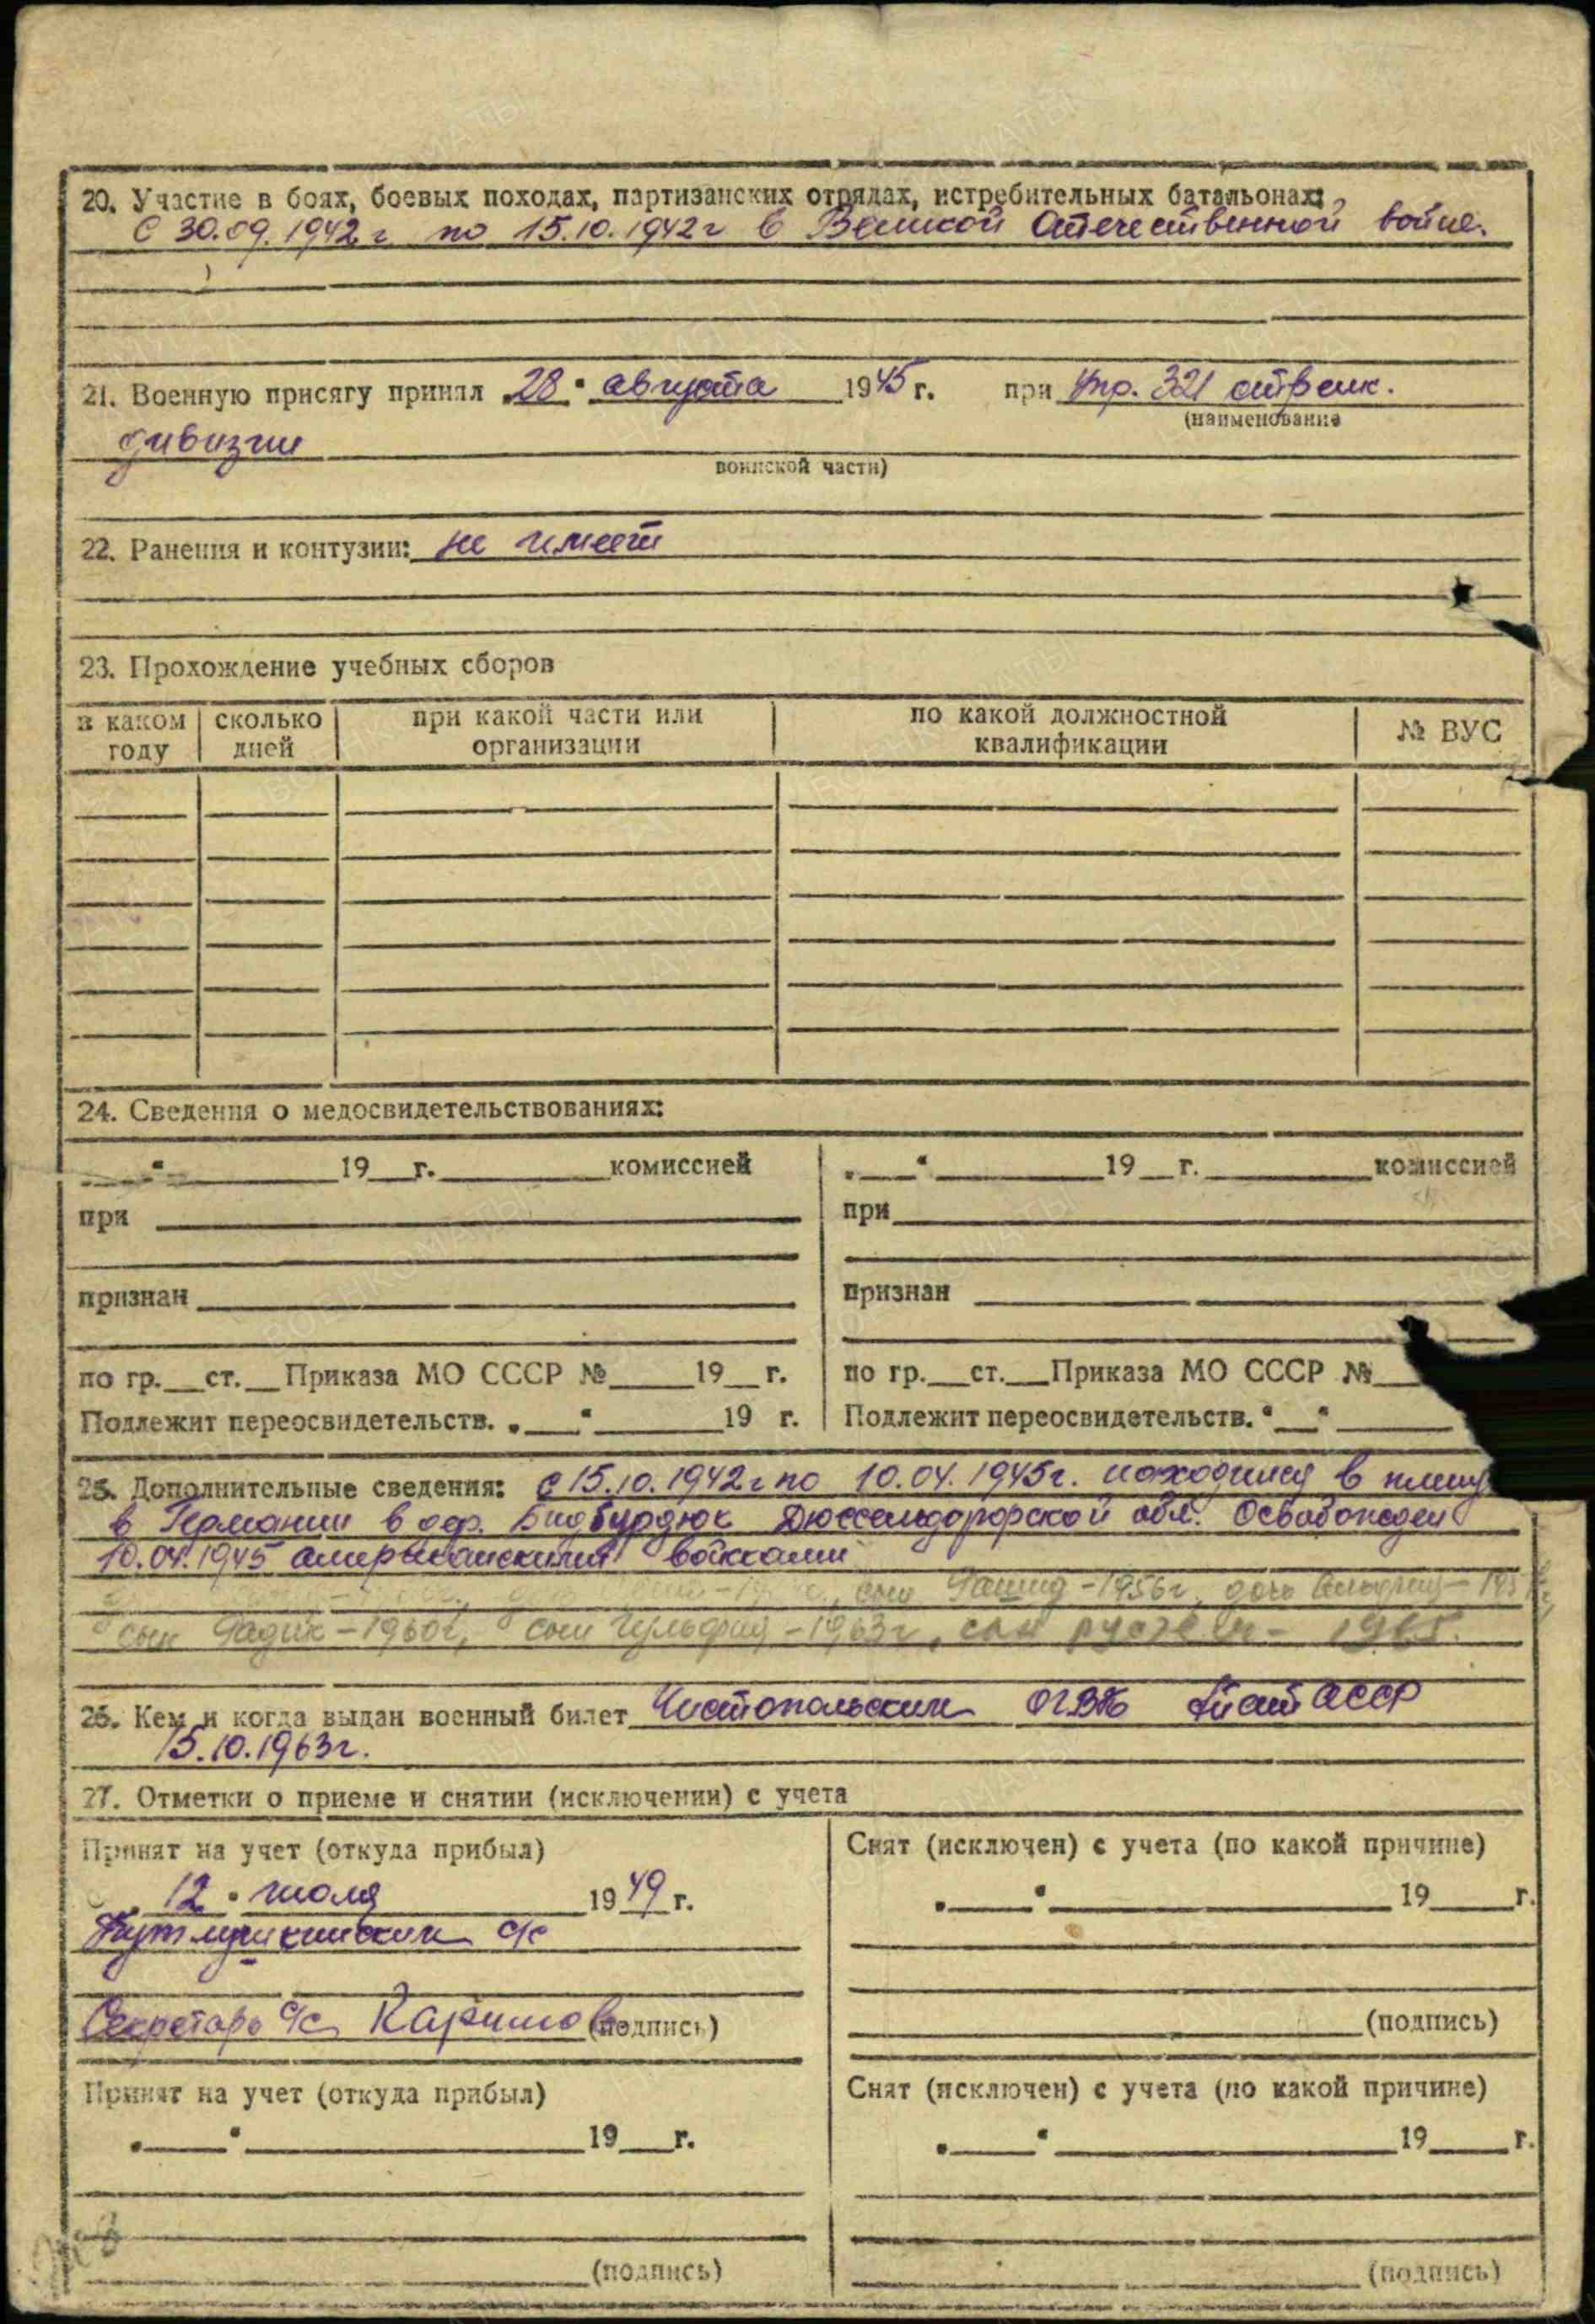 20. Участие в боях, боевых походах, партизанских отрядах, истребительных батальонах:
С 30.09.1942 г по 15.10.1942 г в Великой Отечественной войне.
21. Военную присягу принял „28" августа 1945 г. при Упр. 321 стрелк.
(наименование
дивизии
воинской части)
22. Ранения и контузии: не имеет
23. Прохождение учебных сборов
в каком году | сколько дней | при какой части или организации | по какой должностной квалификации | № ВУС
24. Сведения о медосвидетельствованиях:
„___"______19__г.______комиссией
при
признан
по гр.__ст.__Приказа МО СССР №____19__г.
Подлежит переосвидетельств. „___"_____19 г.
„___"______19__г.______комиссией
при
признан
по гр.__ст.__Приказа МО СССР №
Подлежит переосвидетельств. "__"
25. Дополнительные сведения: с 15.10.1942 г по 10.04. 1945 г. находился в плену
в Германии в Дюссельдорфской обл. Освобожден
10.04.1945 американскими войсками
сын Рашид - 1956 г, дочь
сын Радик - 1960 г, сын - 1963 г, сын - 1965.
26. Кем и когда выдан военный билет Чистопольским ОГВК ТатАССР
15.10.1963 г.
27. Отметки о приеме и снятии (исключении) с учета
Принят на учет (откуда прибыл)
„12" июля 1949 г.
с/с
Секретарь с/с Каримов (подпись)
Снят (исключен) с учета (по какой причине)
„___"______19___г.
(подпись)
Принят на учет (откуда прибыл)
„___"______19__г.
(подпись)
Снят (исключен) с учета (по какой причине)
„___"______19___г.
(подпись)